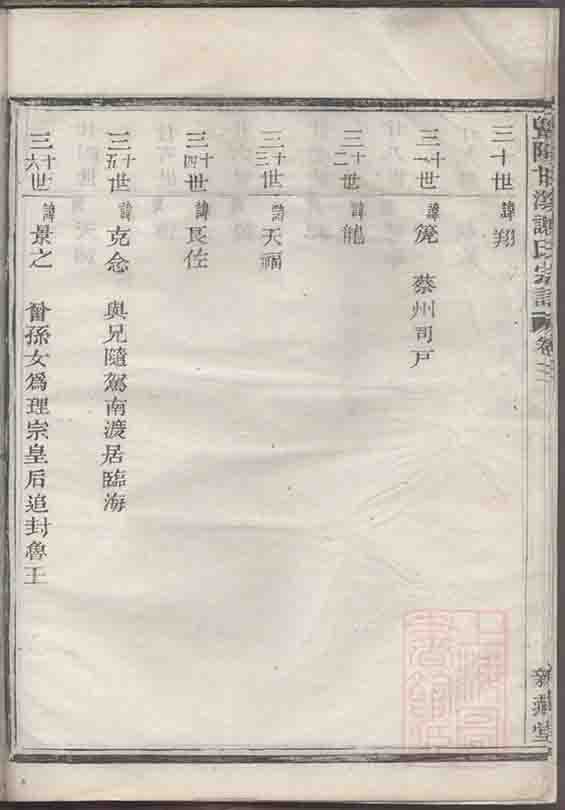 暨陽甘溪謝氏宗譜 卷三
三十世 諱翔
三十一世 諱 蔡州司戶
三十二世 諱龍
三十三世 諱天福
三十四世 諱良佐
三十五世 諱克念 與兄隨駕南渡居臨海
三十六世 諱景之 曾孫女為理宗皇后追封魯王
上海圖書館藏